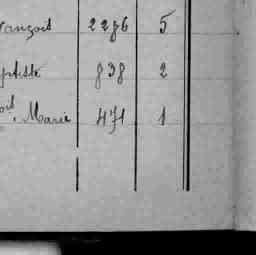 rançois 2286 5
ptiste 838 2
ois, Marie 471 1